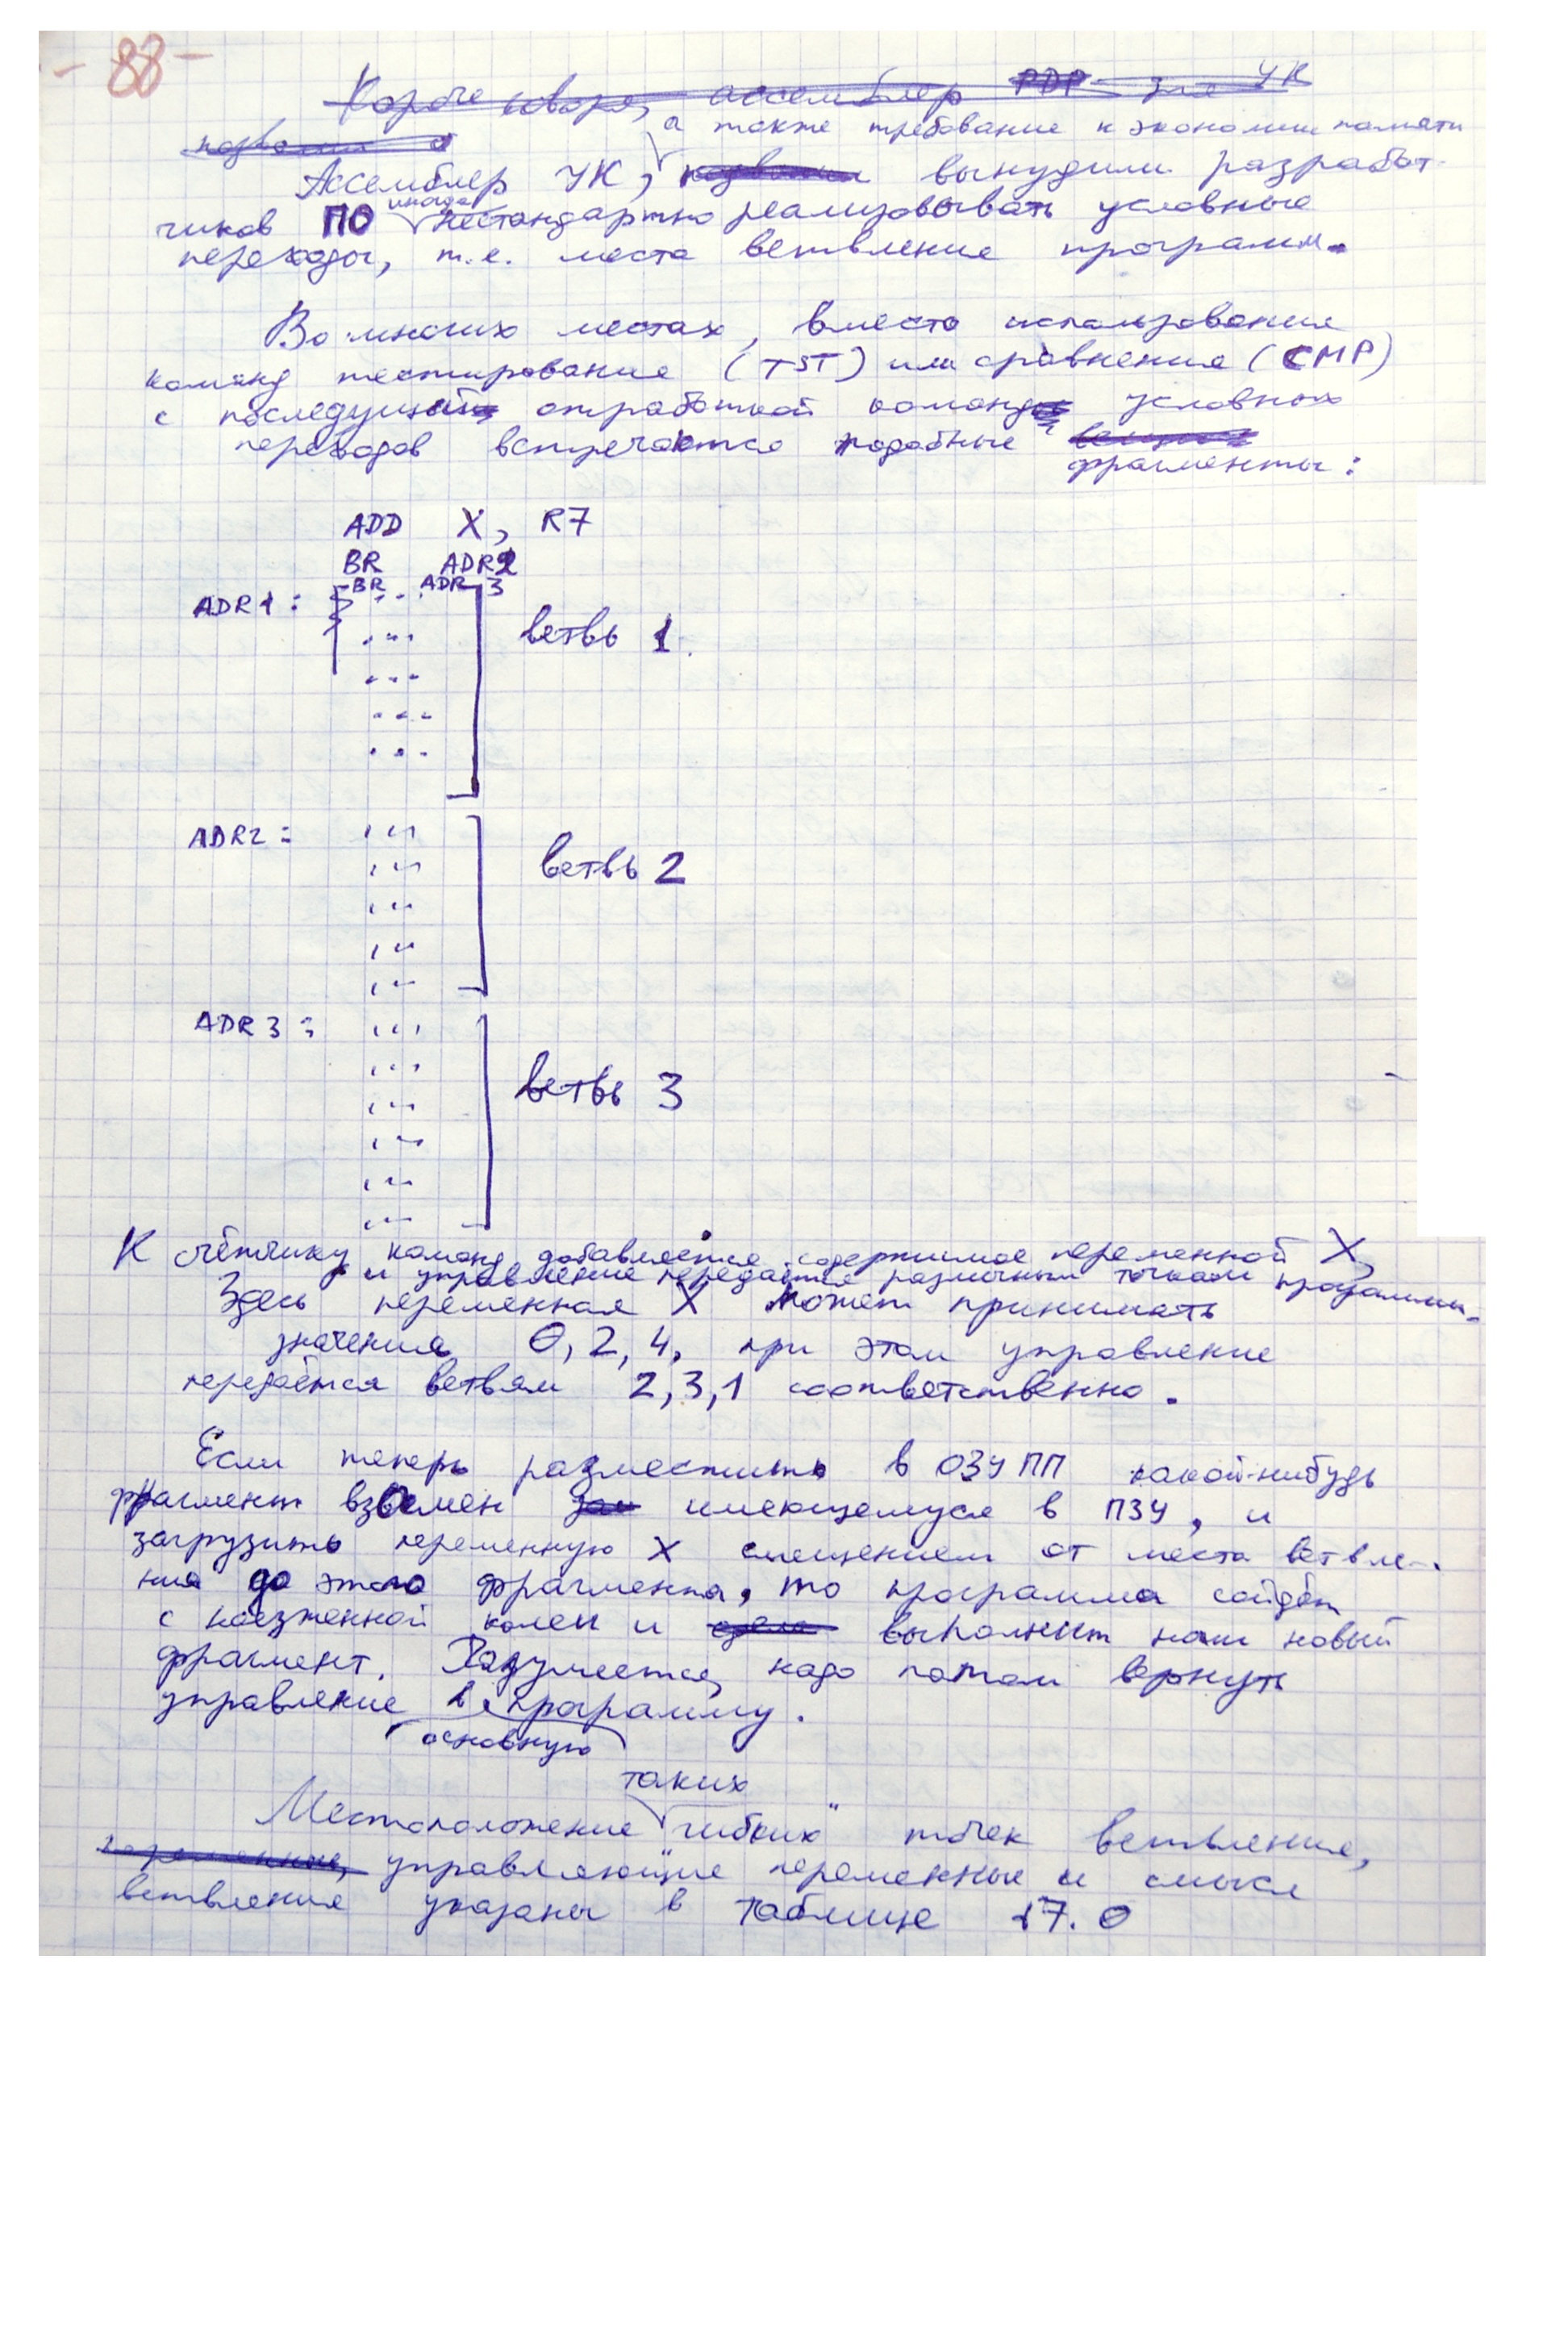 - 88 -
Короче говоря, ассемблер PDP для УК
позволил
а также требование к экономии памяти
Ассемблер УК, вынудили разработ-
чиков ПО иногда нестандартно реализовывать условные
переходы, т.е. места ветвления программ.
Во многих местах, вместо использования
команд тестирования (TST) или сравнения (CMP)
с последующей отработкой команд условных
переходов встречаются подобные
фрагменты:
ADD X, R7
BR ADR2
BR ADR 3
ADR1: ...
ветвь 1
ADR2:
ветвь 2
ADR3:
ветвь 3
К счётчику команд добавляется содержимое переменной X,
и управление передаётся различным точкам программы.
Здесь переменная X может принимать
значения 0, 2, 4, при этом управление
передаётся ветвям 2, 3, 1 соответственно.
Если теперь разместить в ОЗУ ПП какой-нибудь
фрагмент взамен имеющемуся в ПЗУ, и
загрузить переменную X смещением от места ветвле-
ния до этого фрагмента, то программа сойдёт
с наезженной колеи и выполнит наш новый
фрагмент. Разумеется, надо потом вернуть
управление в программу.
основную
таких
Местоположение "гибких" точек ветвления,
переменные, управляющие переменные и смысл
ветвления указаны в таблице 17.0